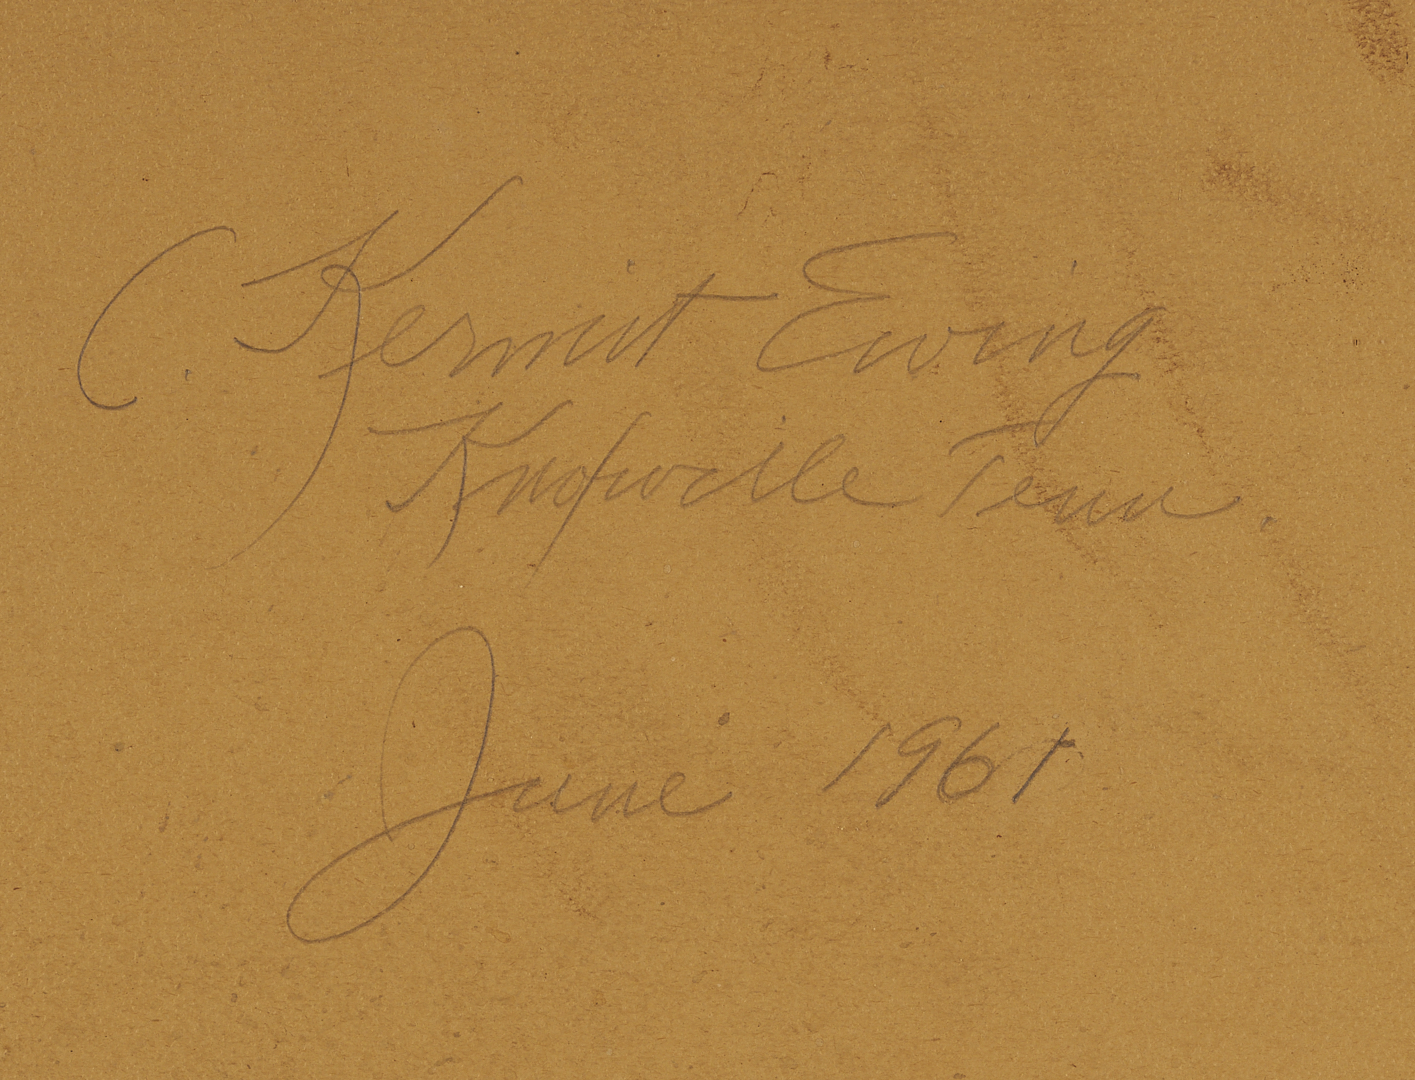 C. Kermit Ewing
Knoxville Tenn.
June 1961